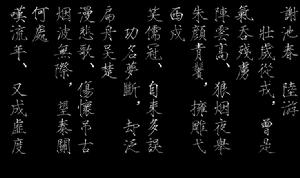 謝池春　陸游
　壯歲從戎，曾是
氣吞殘虜
陣雲高、狼烟夜舉
朱顏青鬢，擁雕戈
西戍
笑儒冠、自來多誤
　功名夢斷，却泛
扁舟吳楚
漫悲歌、傷懷弔古
烟波無際，望秦關
何處
嘆流年、又成虛度